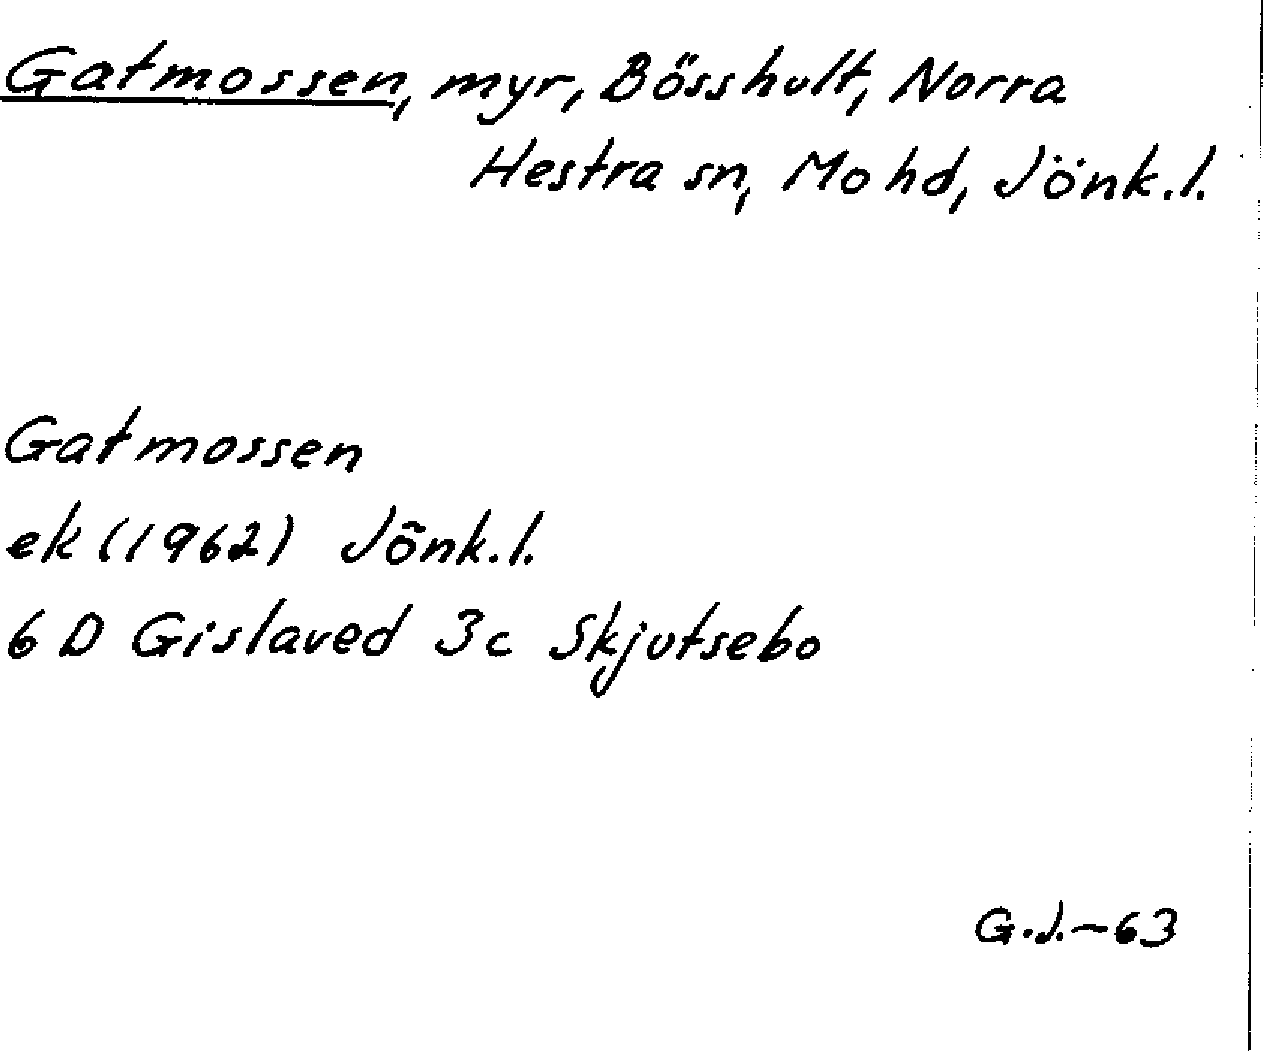 Gatmossen, myr, Bösshult, Norra
Hestra sn, Mo hd, Jönk.l.
Gatmossen
ek (1962) Jönk.l.
6 D Gislaved 3c Skjutsebo
G.J.-63